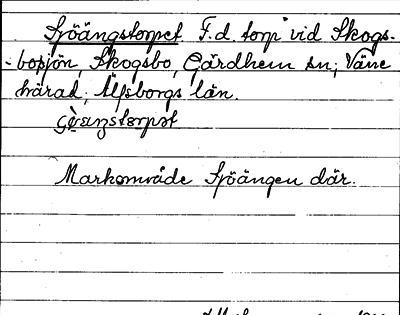 Sjöängstorpet F.d. torp vid Skogs-
-bosjön, Skogsbo, Gärdhem sn; Väne
härad; Älfsborgs län.
Markområde Sjöängen där.